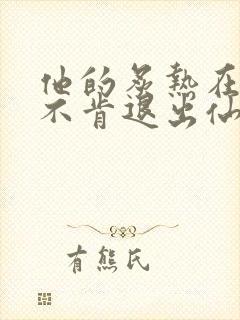 他的炙热在
不肯退出仙
有熊氏